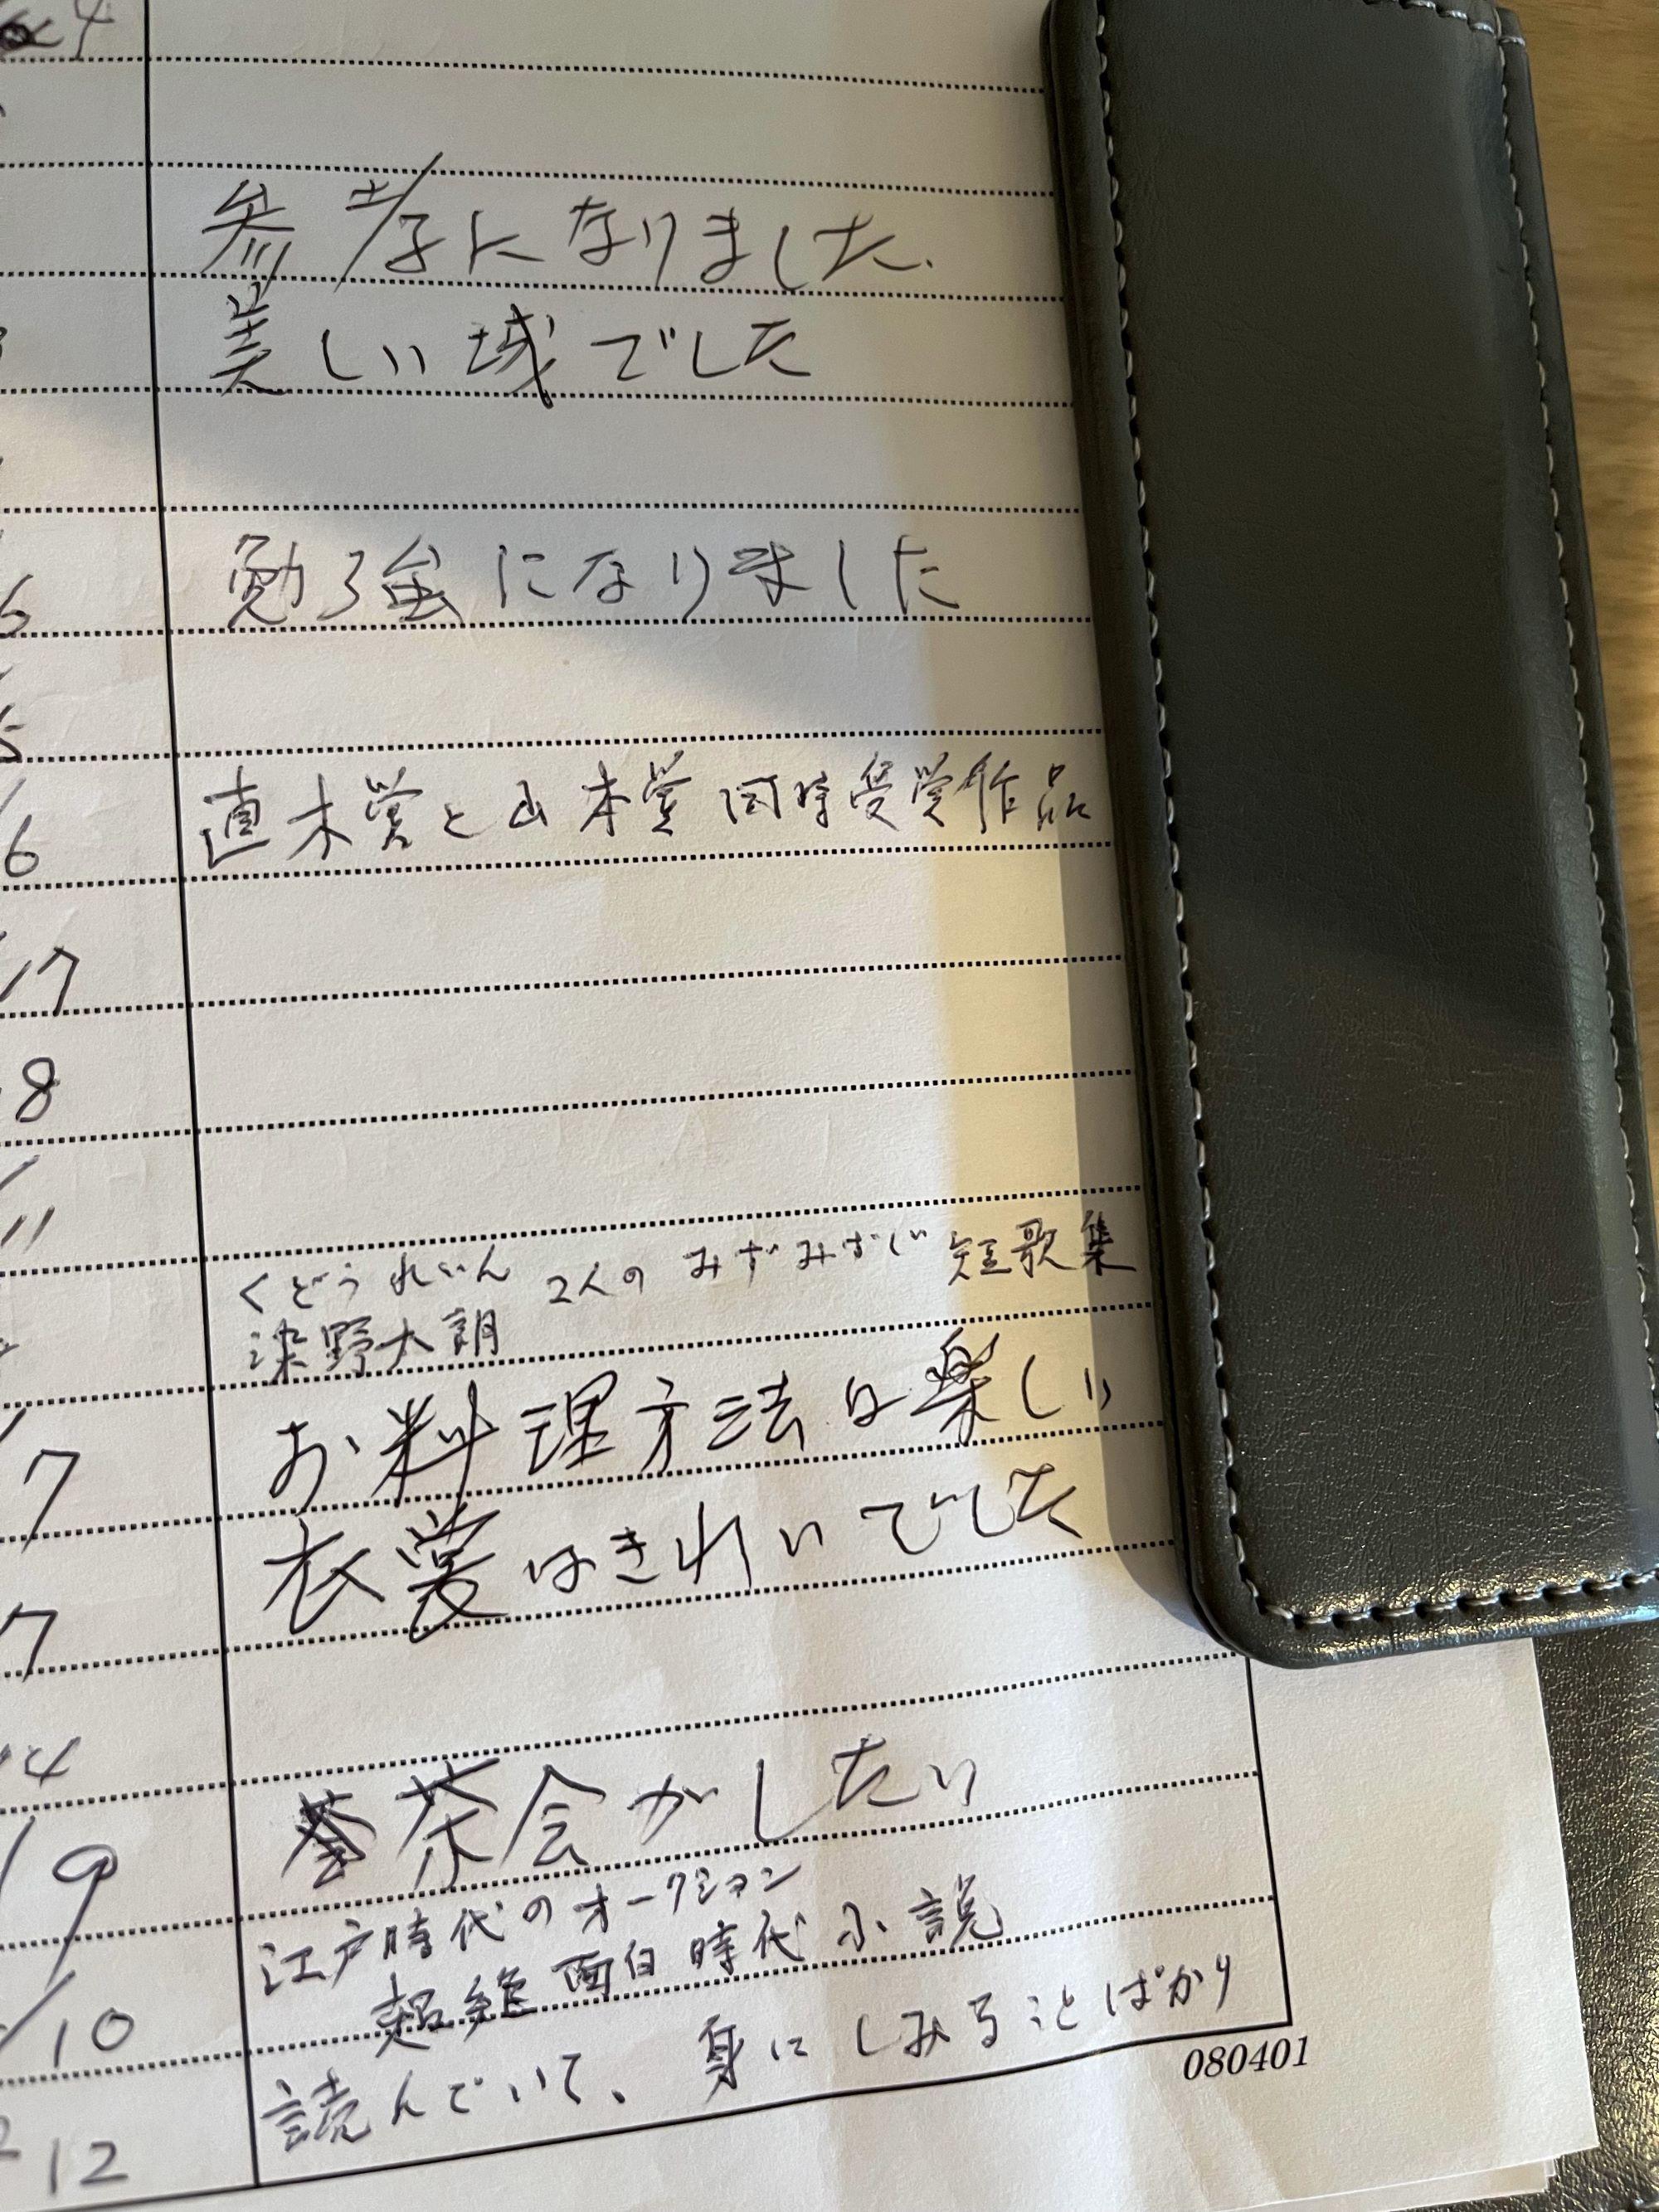 4
参考になりました.
美しい城でした
勉強になりました
6
5
直木賞と山本賞同時受賞作品
6
17
8
11
くどうれいん 2人の みずみずしい 短歌集
染野太朗
お料理方法は楽しい
7
衣裳はきれいでした
7
4
茶会がしたい
19
江戸時代のオークション
超絶面白時代小説
10
読んでいて、身にしみることばかり
12
080401